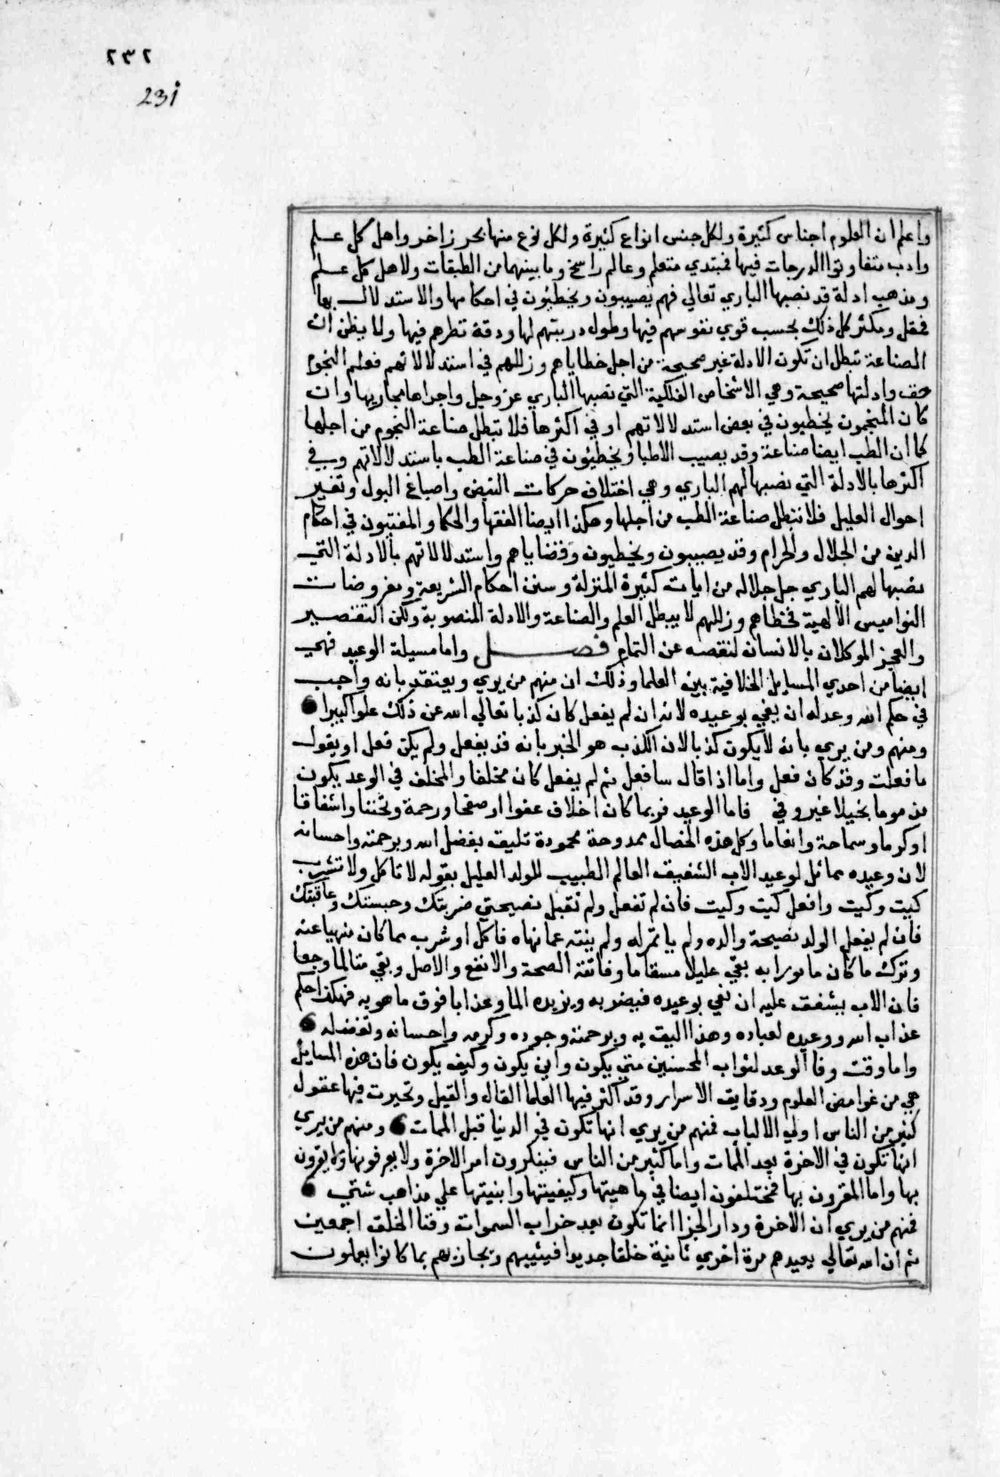 ٢٣٢
231
واعلم ان العلوم اجناس كثيرة ولكل جنس انواع كثيرة ولكل نوع منها بحر زاخر واهل كل علم
وادب متفاوتوا الدرجات فيها فمبتدي متعلم وعالم راسخ وما بينهما من الطبقات ولاهل كل علم
ومذهب ادلة قد نصبها الباري تعالي فهم يصيبون ويخطيون في احكامها والاستدلال بها
فيقل ويكثر كل ذلك بحسب قوي نفوسهم فيها وطول دربتهم لها ودقة نظرهم فيها ولما يظن ان
الصناعة تبطل ان تكون الادلة غير صحيحة من اجل خطاياهم وزللهم في استدلالاتهم فعلم النجوم
حق وادلتها صحيحة وهي الاشخاص الفلكية التي نصبها الباري عز وجل واجراها مجاريها وان
كان المنجمون يخطيون في بعض استدلالاتهم او في اكثرها فلا تبطل صناعة النجوم من اجلها
كما ان الطب ايضا صناعة وقد يصيب الاطبا ويخطيون في صناعة الطب باستدلالاتهم وفي
اكثرها بالادلة التي نصبها لهم الباري وهي اختلاف حركات النبض واصباغ البول وتغير
احوال العليل فلا تبطل صناعة الطب من اجلها وهكذا ايضا الفقها والحكما والمفتيون في احكام
الدين من الحلال والحرام وقد يصيبون ويخطيون وقضاياهم واستدلالاتهم بالادلة التي
نصبها لهم الباري جل جلاله من ايات كثيرة المنزلة وسنن احكام الشريعة ومفروضات
النواميس الالهية فخطاهم وزللهم لا يبطل العلم والصناعة والادلة المنصوبة ولكن التقصير
والعجز الموكلان بالانسان لنقصه عن التمام فصل واما مسيلة الوعيد فهي
ايضا من احدي المسايل الخلافية بين العلما وذلك ان منهم من يري ويعتقد بانه واجب
في حكم الله وعدله ان يفي بوعيده لانه ان لم يفعل كان كذبا تعالي الله عن ذلك علوا كبيرا
ومنهم ومن يري بانه لا يكون كذبا لان الكذب هو الخبر بانه قد يفعل ولم يكن فعل او يقول
ما فعلت وقد كان فعل واما اذا قال سافعل ثم لم يفعل كان مخلفا والمخلف في الوعد يكون
مذموما بخيلا غير وفي فاما الوعيد فربما كان اخلاف عفوا او صفحا ورحمة وتحننا واشفاقا
او كرما وسماحة وانعاما وكل هذه الخصال ممدوحة محمودة تليق بفضل الله وبرحمته واحسانه
لان وعيده مماثل لوعيد الاب الشفيق العالم الطبيب للولد العليل بقوله لا تاكل ولا تشرب
كيت وكيت وافعل كيت وكيت فان لم تفعل ولم تقبل نصيحتي ضربتك وحبستك وعاقبتك
فان لم يفعل الولد نصيحة والده ولم ياتمر له ولم ينته عما نهاه فاكل او شرب مما كان منهيا عنه
وترك ما كان مامورا به بقي عليلا مسقاما وفاتته الصحة والانفع والاصل وبقي متالما وجعا
فان الاب يشفق عليه ان يفي بوعيده فيضربه ويزيده الما وعذابا فوق ما هو به فهكذا حكم
عذاب الله ووعيده لعباده وهذا اليق به وبرحمته وجوده وكرمه واحسانه وتفضله
واما وقت وفا الوعد لثواب المحسنين متي يكون واين يكون وكيف يكون فان هذه المسايل
هي من غوامض العلوم ودقايق الاسرار وقد اكثر فيها العلما القال والقيل وتحيرت فيها عقول
كثير من الناس اولي الالباب فمنهم من يري انها تكون في الدنيا قبل الممات ومنهم من يري
انها تكون في الاخرة بعد الممات واما كثير من الناس فينكرون امر الاخرة ولا يعرفونها ولا يقرون
بها واما المقرون بها فمختلفون ايضا في ماهيتها وكيفيتها وابنيتها علي مذاهب شتي
فمنهم من يري ان الاخرة ودار الجزا انما تكون بعد خراب السموات وفنا الخلق اجمعين
ثم ان الله تعالي يعيدهم مرة اخري ثانية خلقا جديدا فيثيبهم ويجازيهم بما كانوا يعملون